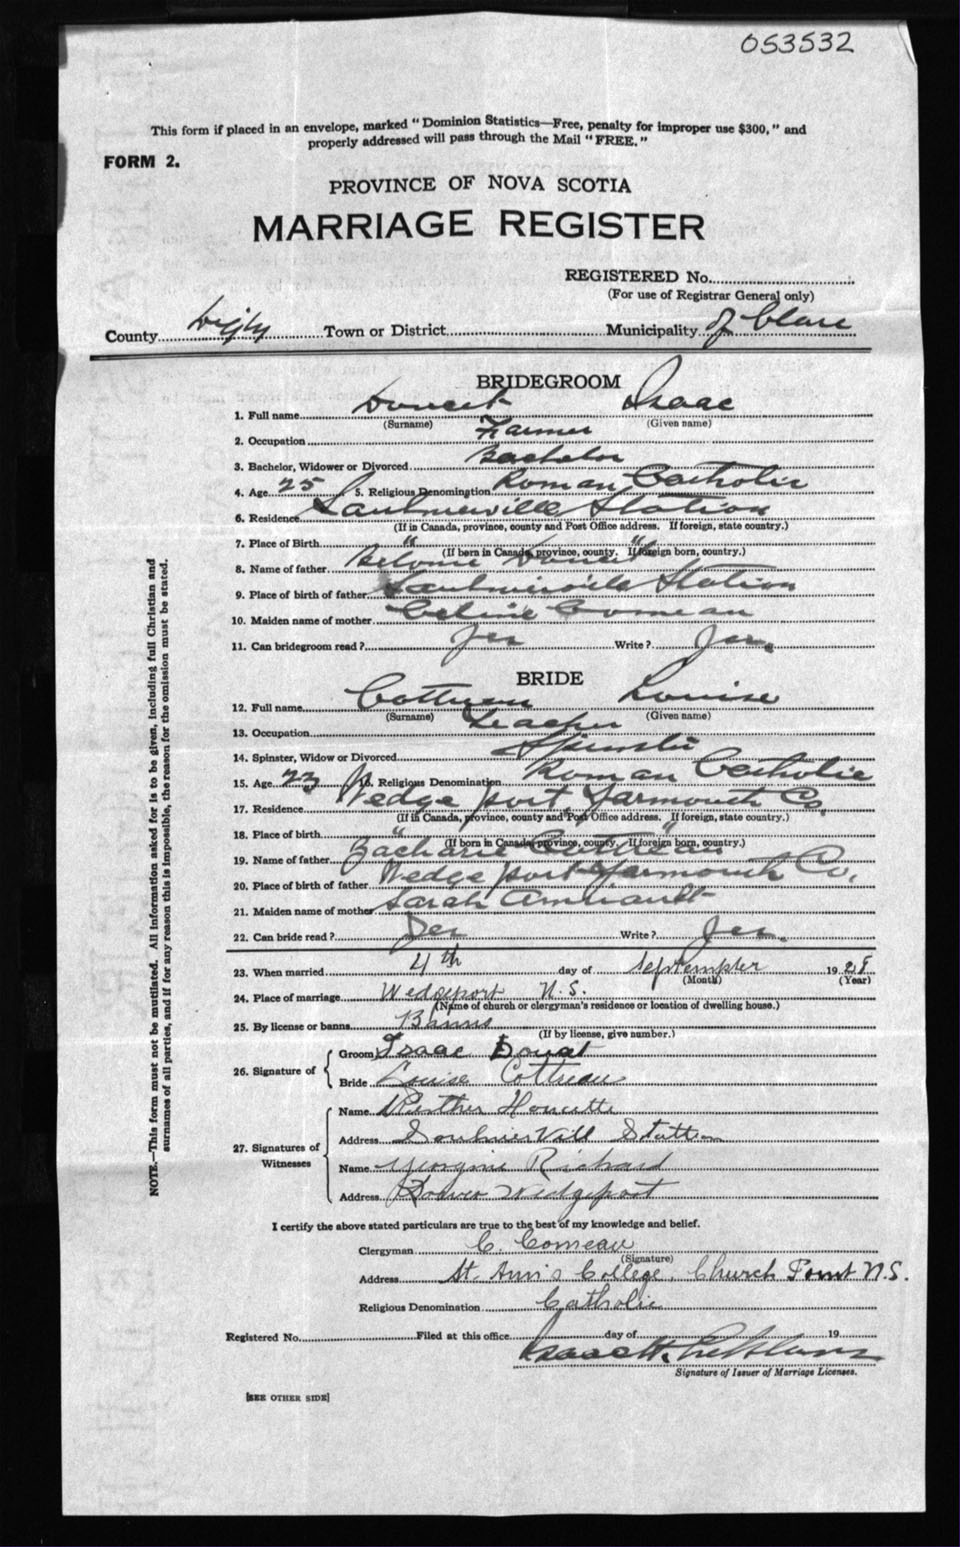 053532
This form if placed in an envelope, marked "Dominion Statistics—Free, penalty for improper use $300," and
properly addressed will pass through the Mail "FREE."
FORM 2.
PROVINCE OF NOVA SCOTIA
MARRIAGE REGISTER
REGISTERED No.
(For use of Registrar General only)
County Digby Town or District Municipality of Clare
BRIDEGROOM
1. Full name Doucet Isaac
(Surname) (Given name)
2. Occupation Farmer
3. Bachelor, Widower or Divorced Bachelor
4. Age 25 5. Religious Denomination Roman Catholic
6. Residence Saulnierville Station
(If in Canada, province, county and Post Office address. If foreign, state country.)
7. Place of Birth " "
(If born in Canada, province, county. If foreign born, country.)
8. Name of father Doucet
9. Place of birth of father Saulnierville Station
10. Maiden name of mother Celine Comeau
11. Can bridegroom read? Yes Write? Yes.
BRIDE
12. Full name Cottreau Louise
(Surname) (Given name)
13. Occupation Teacher
14. Spinster, Widow or Divorced Spinster
15. Age 23 16. Religious Denomination Roman Catholic
17. Residence Wedgeport, Yarmouth Co.
(If in Canada, province, county and Post Office address. If foreign, state country.)
18. Place of birth " "
(If born in Canada, province, county. If foreign born, country.)
19. Name of father Zacharie Cottreau
20. Place of birth of father Wedgeport Yarmouth Co.
21. Maiden name of mother Sarah Amirault
22. Can bride read? Yes Write? Yes.
23. When married 4th day of September 19
(Month) (Year)
24. Place of marriage Wedgeport N.S.
(Name of church or clergyman's residence or location of dwelling house.)
25. By license or banns Banns
(If by license, give number.)
26. Signature of
Groom Isaac Doucet
Bride Louise Cottreau
27. Signatures of Witnesses
Name
Address Station
Name Georgina Richard
Address Wedgeport
I certify the above stated particulars are true to the best of my knowledge and belief.
Clergyman C. Comeau
(Signature)
Address St. Ann's College, Church Point N.S.
Religious Denomination Catholic
Registered No. Filed at this office day of 19
Signature of Issuer of Marriage Licenses.
[SEE OTHER SIDE]
NOTE.—This form must not be mutilated. All information asked for is to be given, including full Christian and
surnames of all parties, and if for any reason this is impossible, the reason for the omission must be stated.